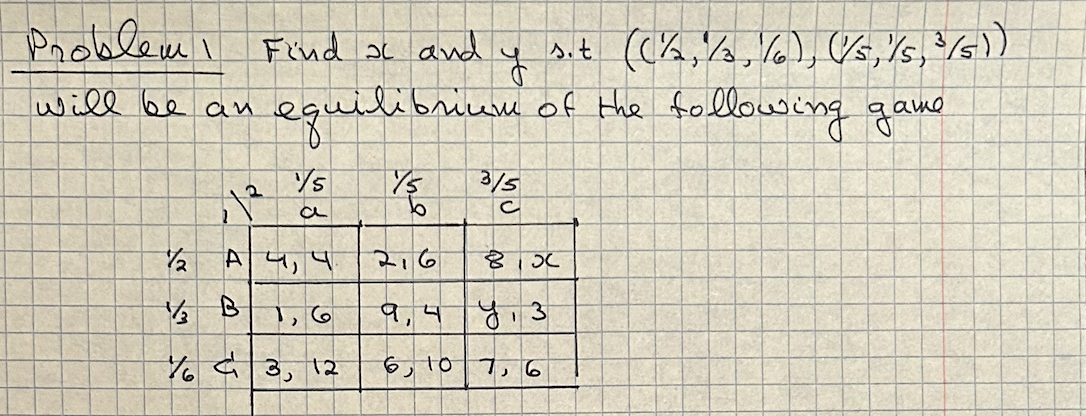 Problem 1 Find x and y s.t ((1/2, 1/3, 1/6), (1/5, 1/5, 3/5))
will be an equilibrium of the following game
1/5 1/5 3/5
1\2 a b c
1/2 A 4, 4 2, 6 8, x
1/3 B 1, 6 9, 4 y, 3
1/6 C 3, 12 6, 10 7, 6